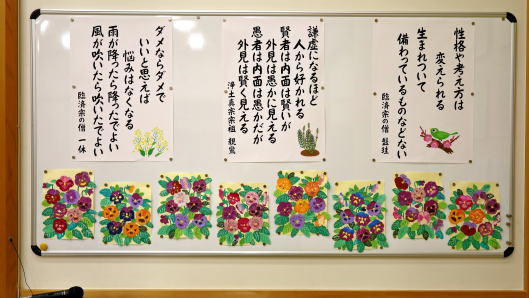 性格や考え方は
変えられる
生まれついて
備わっているものなどない
臨済宗の僧 盤珪
謙虚になるほど
人から好かれる
賢者は内面は賢いが
外見は愚かに見える
愚者は内面は愚かだが
外見は賢く見える
浄土真宗宗祖 親鸞
ダメならダメで
いいと思えば
悩みはなくなる
雨が降ったら降ったでよい
風が吹いたら吹いたでよい
臨済宗の僧 一休